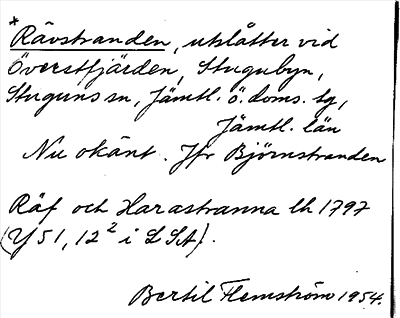 *Rävstranden, utslåtter vid
Överstfjärden, Stugubyn,
Stuguns sn, Jämtl. ö. doms. tg,
Jämtl. län
Nu okänt. Jfr Björnstranden
Räf och Harastranna lh 1797
(Y51, 12² i LSA).
Bertil Flemström 1954.